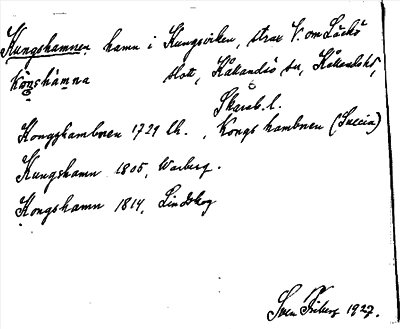 Kungshamnen hamn i Kungsviken, strax V. om Läckö
Kôngshamna slott, Kålandsö sn, Kålands hd,
Skarab. l.
Kongshambnen 1729 Lk., Kongs hambnen (Suecia)
Kungshamn 1805, Warberg.
Kongshamn 1814, Lindskog
Sven Friberg 1927.